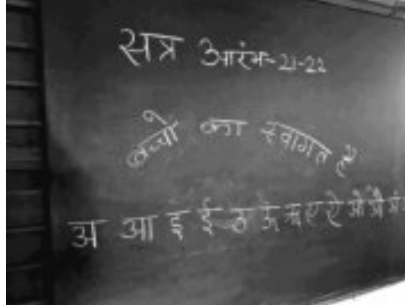 सत्र आरंभ-21-22
बच्चों का स्वागत है
अ आ इ ई ठ ऊ ऋ ए ऐ ओ औ अं